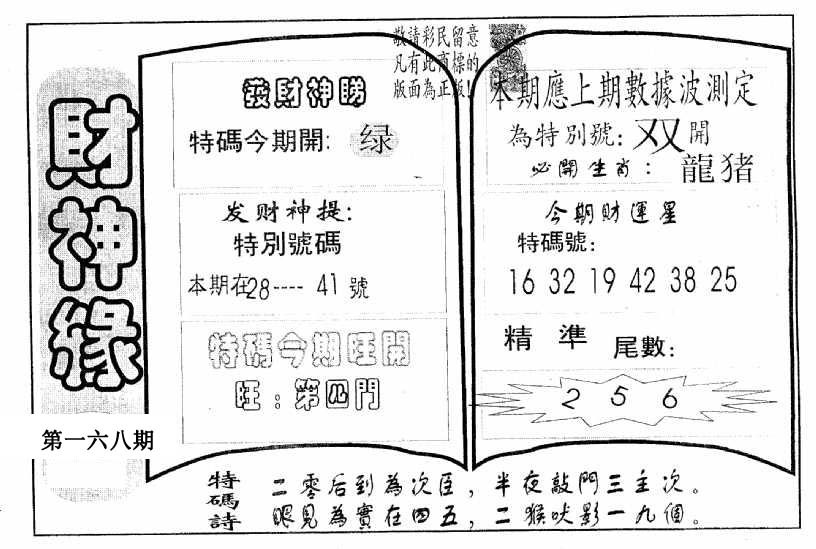 敬請彩民留意
凡有此商標的
版面為正版!
財神緣
第一六八期
發財神睇
特碼今期開: 绿
发财神提:
特別號碼
本期在28---- 41 號
特碼今期旺開
旺:第四門
本期應上期數據波測定
為特別號: 双 開
必開生肖: 龍猪
今期財運星
特碼號:
16 32 19 42 38 25
精 準 尾數:
2 5 6
特碼詩
二零后到為次臣，半夜敲門三主次。
眼見為實在四五，二猴吠影一九個。